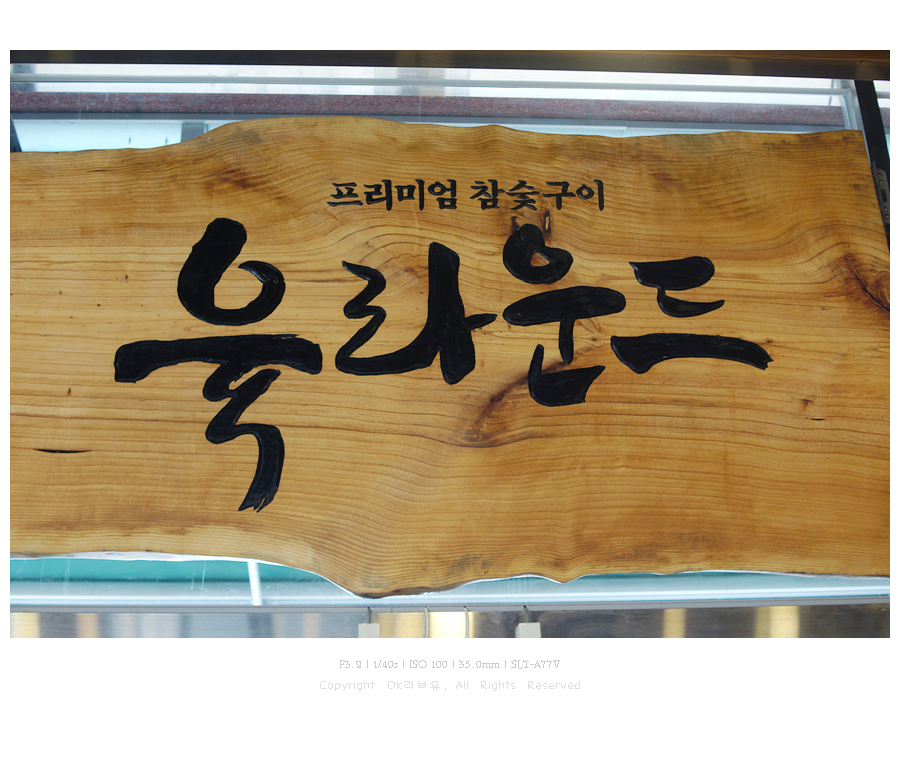 프리미엄 참숯구이
육라운드
F3.2 | 1/40s | ISO 100 | 35.0mm | SLT-A77V
Copyright Ok러브유. All Rights Reserved